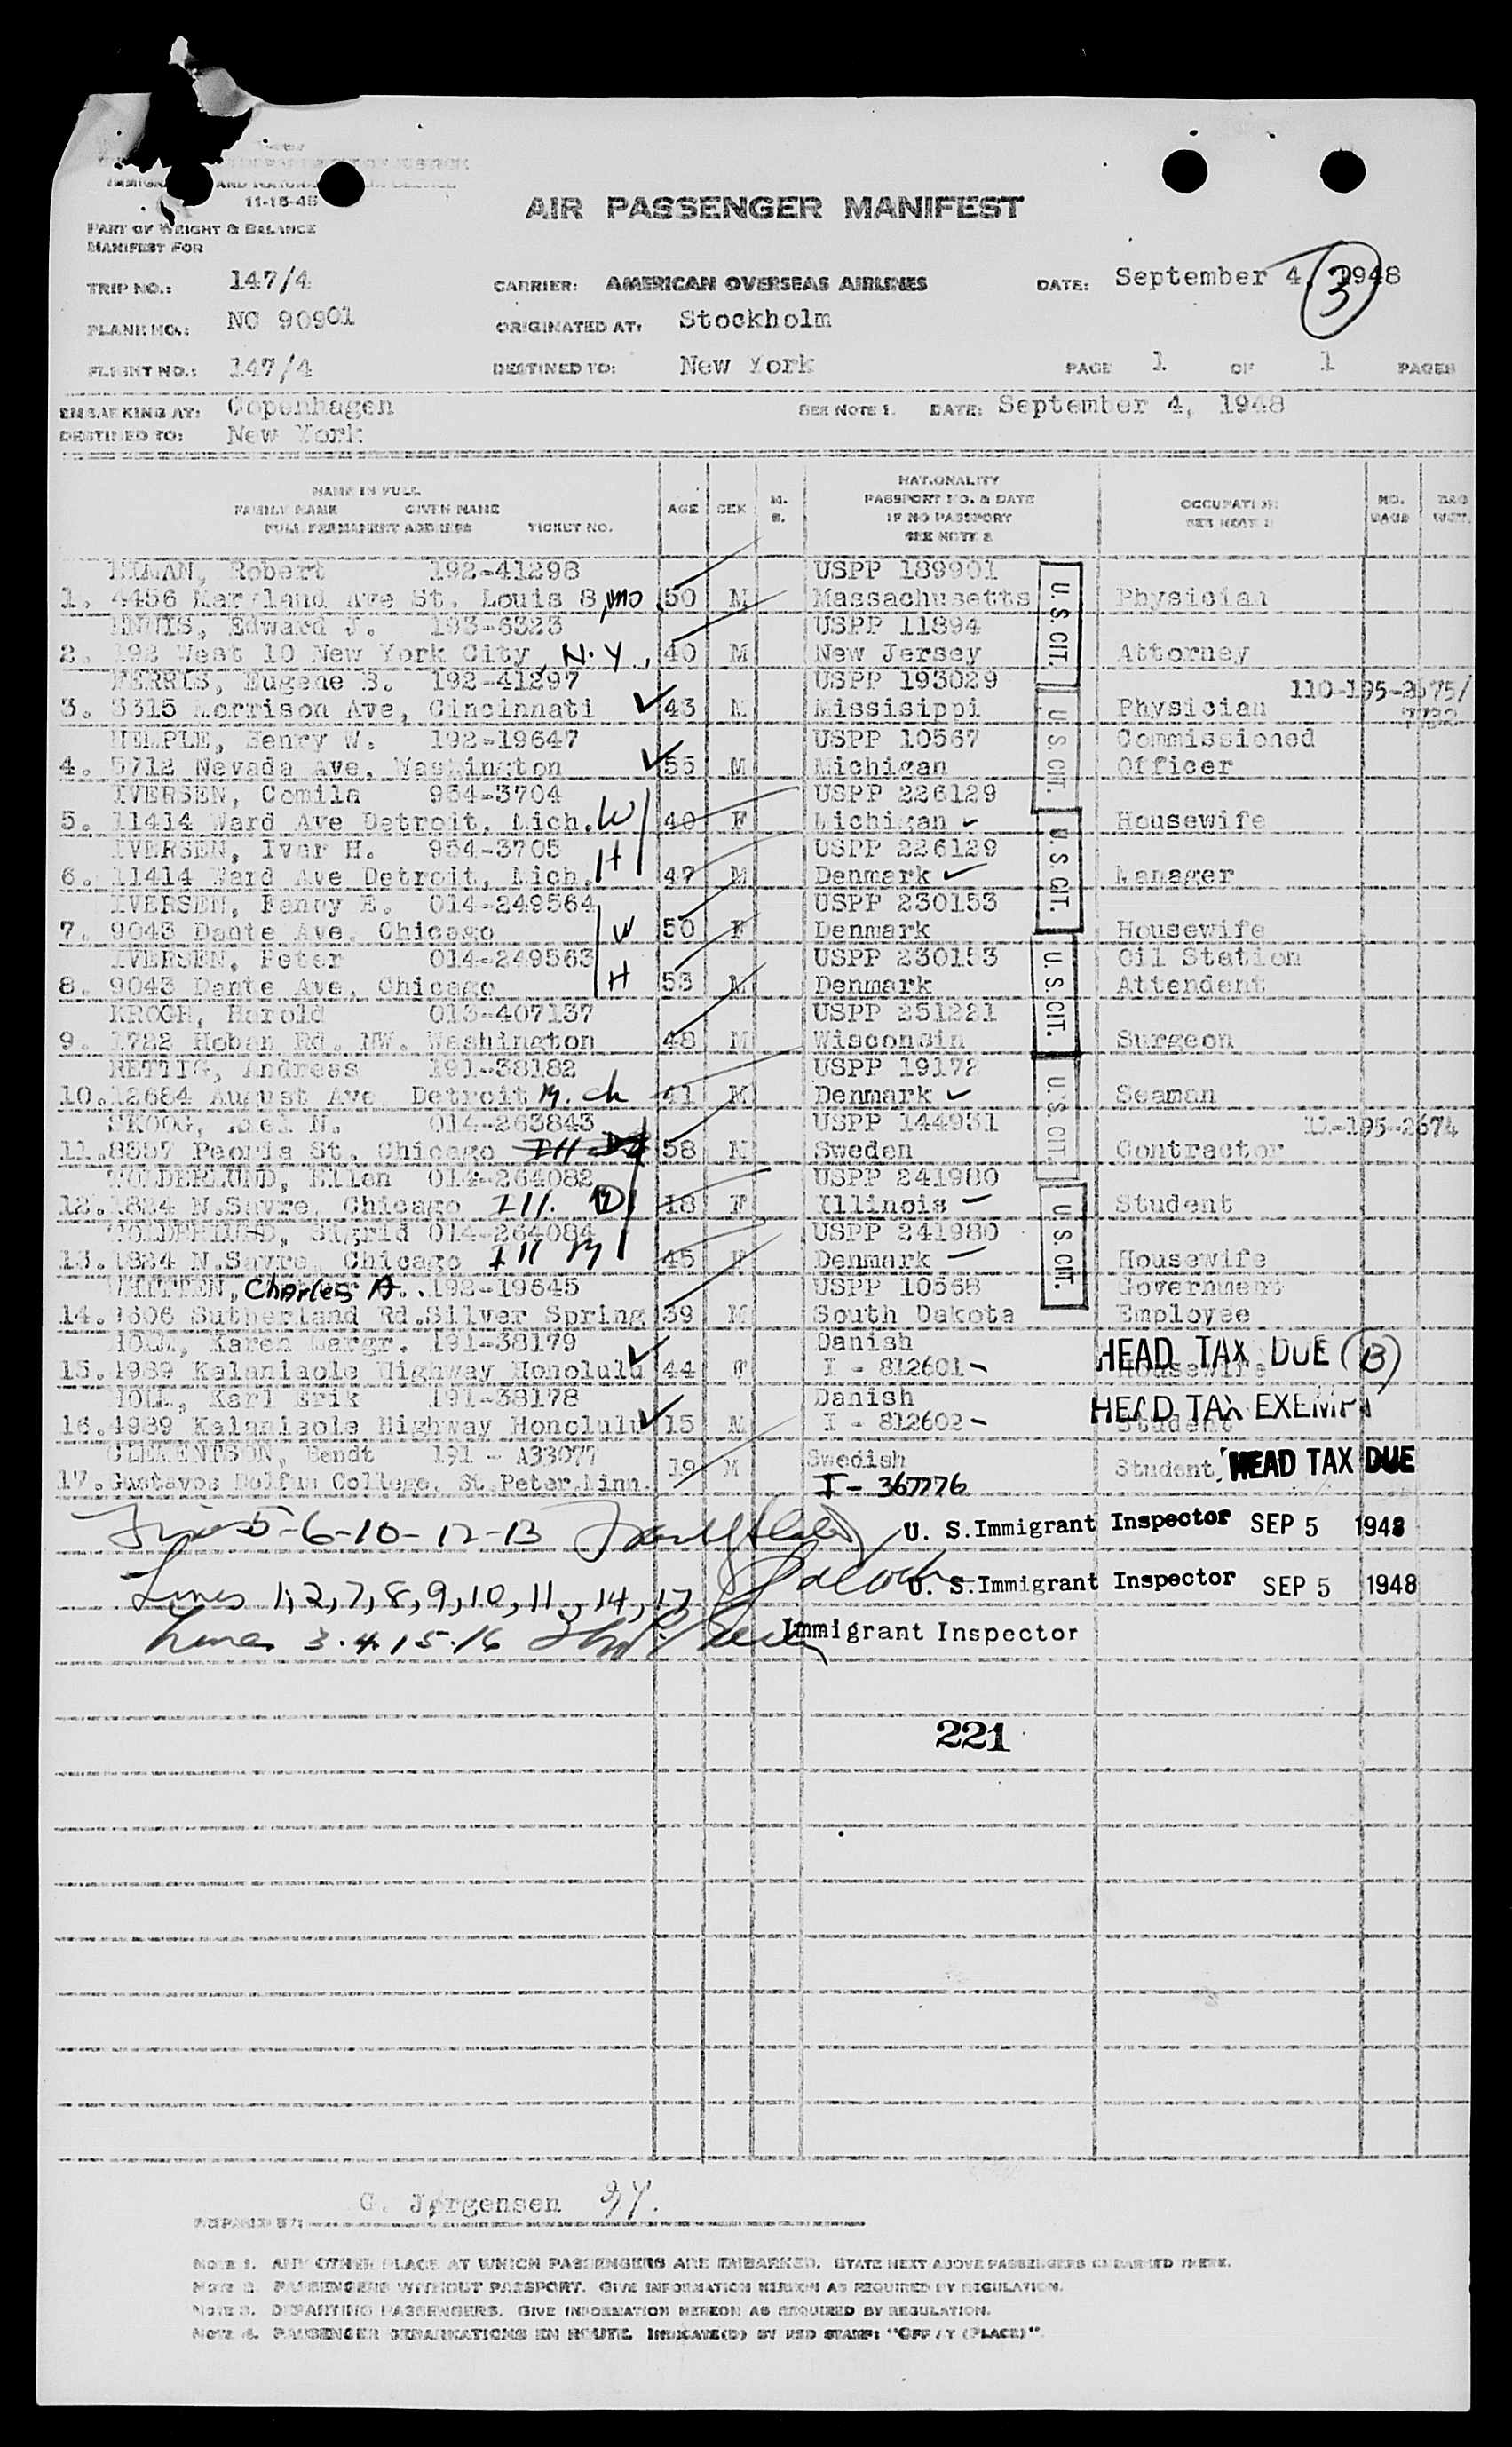 11-15-45
AIR PASSENGER MANIFEST
PART OF WEIGHT & BALANCE
MANIFEST FOR
TRIP NO.: 147/4 CARRIER: AMERICAN OVERSEAS AIRLINES DATE: September 4, 1948
3
PLANE NO.: NC 90901 ORIGINATED AT: Stockholm
FLIGHT NO.: 147/4 DESTINED TO: New York PAGE 1 OF 1 PAGES
EMBARKING AT: Copenhagen SEE NOTE 1. DATE: September 4, 1948
DESTINED TO: New York
NAME IN FULL
FAMILY NAME GIVEN NAME
FULL PERMANENT ADDRESS TICKET NO.
AGE SEX M. S.
NATIONALITY
PASSPORT NO. & DATE
IF NO PASSPORT
SEE NOTE 2
OCCUPATION
SEE NOTE 2
NO. BAGS
BAG WGT.
Robert 192-41298 USPP 189901
1. 4456 Maryland Ave St. Louis 8, mo 50 M Massachusetts U. S. CIT. Physician
Edward J. 193-6323 USPP 11894
2. 192 West 10 New York City, N.Y, 40 M New Jersey Attorney
FERRIS, Eugene B. 192-41297 USPP 193029 110-195-2675/
3. 3315 Morrison Ave, Cincinnati 43 M Missisippi U. S. CIT. Physician
HEMPLE, Henry W. 192-19647 USPP 10567 Commissioned
4. 5712 Nevada Ave, Washington 55 M Michigan Officer
IVERSEN, Comila 954-3704 USPP 226129
5. 11414 Ward Ave Detroit, Mich. W 40 F Michigan U. S. CIT. Housewife
IVERSEN, Ivar H. 954-3705 USPP 226129
6. 11414 Ward Ave Detroit, Mich. H 47 M Denmark Manager
IVERSEN, Fanny E. 014-249564 USPP 230153
7. 9043 Dante Ave, Chicago W 50 F Denmark Housewife
IVERSEN, Peter 014-249563 USPP 230153 U. S. CIT. Oil Station
8. 9043 Dante Ave, Chicago H 53 M Denmark Attendent
KROGH, Harold 013-407137 USPP 251221
9. 1722 Hoban Rd. NW. Washington 48 M Wisconsin Surgeon
RETTIG, Andreas 191-38182 USPP 19172
10. 12684 August Ave Detroit Mich 41 M Denmark U. S. CIT. Seaman
SKOOG, N. 014-263843 USPP 144931 11-195-2674
11. 8557 Peoria St. Chicago Ill 58 M Sweden Contractor
Ellen 014-264082 USPP 241980
12. 1824 N.Sayre, Chicago Ill. D 18 F Illinois U. S. CIT. Student
Sigrid 014-264084 USPP 241980
13. 1824 N.Sayre, Chicago Ill M 45 F Denmark Housewife
WHITTEN, Charles A. 192-19645 USPP 10568 Government
14. 1606 Sutherland Rd.Silver Spring 39 M South Dakota Employee
HOLM, Karen Margr. 191-38179 Danish HEAD TAX DUE (B)
15. 4989 Kalanlaole Highway Honolulu 44 F I - 812601 Housewife
HOLM, Karl Erik 191-38178 Danish HEAD TAX EXEMPT
16. 4989 Kalanlaole Highway Honolulu 15 M I - 812602 Student
CLEMENTSON, Bendt 191 - A33077 Swedish
17. Gustavos Dolfus College, St.Peter,Minn. 19 M I - 367776 Student HEAD TAX DUE
Lines 5-6-10-12-13 U. S. Immigrant Inspector SEP 5 1948
Lines 1,2,7,8,9,10,11, 14, 17 U. S. Immigrant Inspector SEP 5 1948
Lines 3.4.15.16 Immigrant Inspector
221
G. Jørgensen
PREPARED BY:
NOTE 1. ANY OTHER PLACE AT WHICH PASSENGERS ARE EMBARKED. STATE NEXT ABOVE PASSENGERS EMBARKED THERE.
NOTE 2. PASSENGERS WITHOUT PASSPORT. GIVE INFORMATION HEREON AS REQUIRED BY REGULATION.
NOTE 3. DEPARTING PASSENGERS. GIVE INFORMATION HEREON AS REQUIRED BY REGULATION.
NOTE 4. PASSENGER SEPARATIONS EN ROUTE. INDICATE(D) BY RED STAMP: "OFF AT (PLACE)".